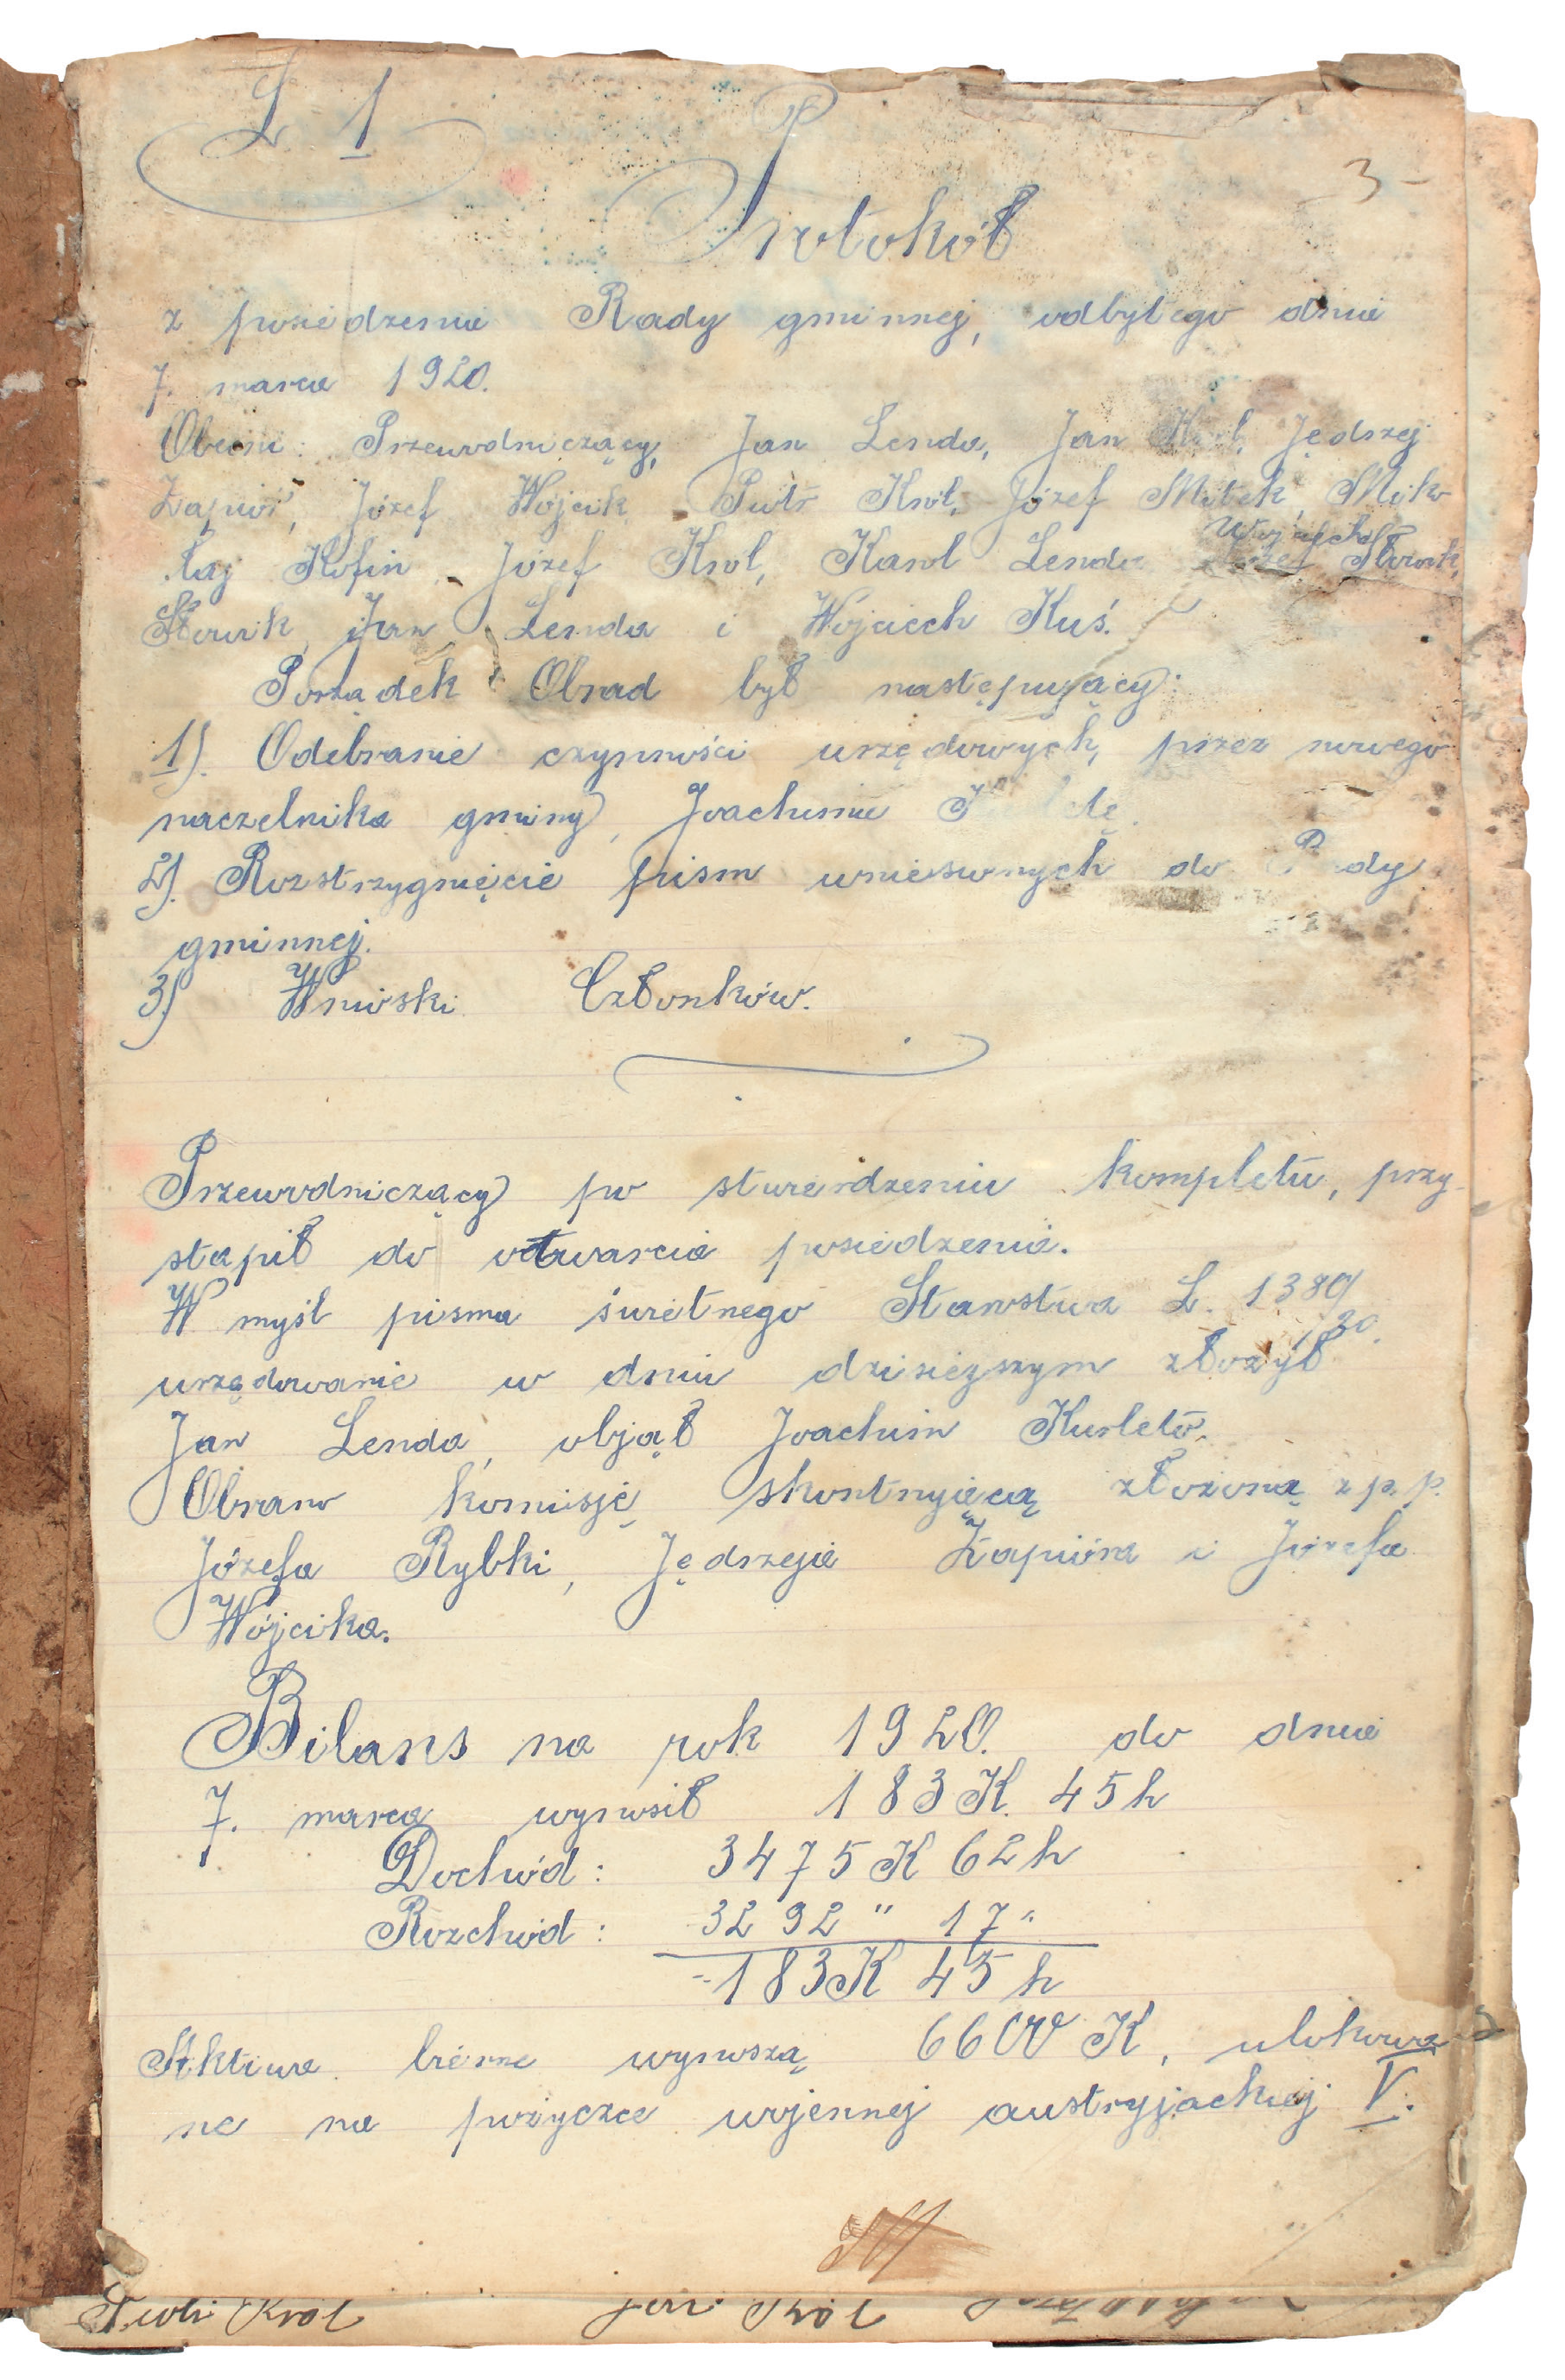 L 1
3
Protokół
z posiedzenia Rady gminnej, odbytego dnia
7. marca 1920.
Obecni: Przewodniczący, Jan Lenda, Jan Król, Jędrzej
Zapiór, Józef Wójcik, Piotr Król, Józef Mitek, Miko-
łaj Kofin, Józef Król, Karol Lenda Wojciech
Sławik, Jan Lenda i Wojciech Kuś.
Porządek Obrad był następujący:
1). Odebranie czynności urzędowych, przez nowego
naczelnika gminy, Joachima
2). Rozstrzygnięcie pism wniesionych do Rady
gminnej.
3) Wnioski Członków.
Przewodniczący po stwierdzeniu kompletu, przy-
stąpił do otwarcia posiedzenia.
W myśl pisma świetnego Starostwa L. 1389/
20.
urzędowanie w dniu dzisiejszym złożył
Jan Lenda, objął Joachim Kurleto.
Obrano komisję skontrującą złożoną z p.p.
Józefa Rybki, Jędrzeja Zapióra i Józefa
Wójcika.
Bilans na rok 1920. do dnia
7. marca wynosił 183 K. 45 h
Dochód: 3475 K 62 h
Rozchód: 3292 " 17 "
183 K 45 h
Aktiwa bierne wynoszą 6600 K, ulokowa-
ne na pożyczce wojennej austryjackiej V.
Piotr Król Jan Król